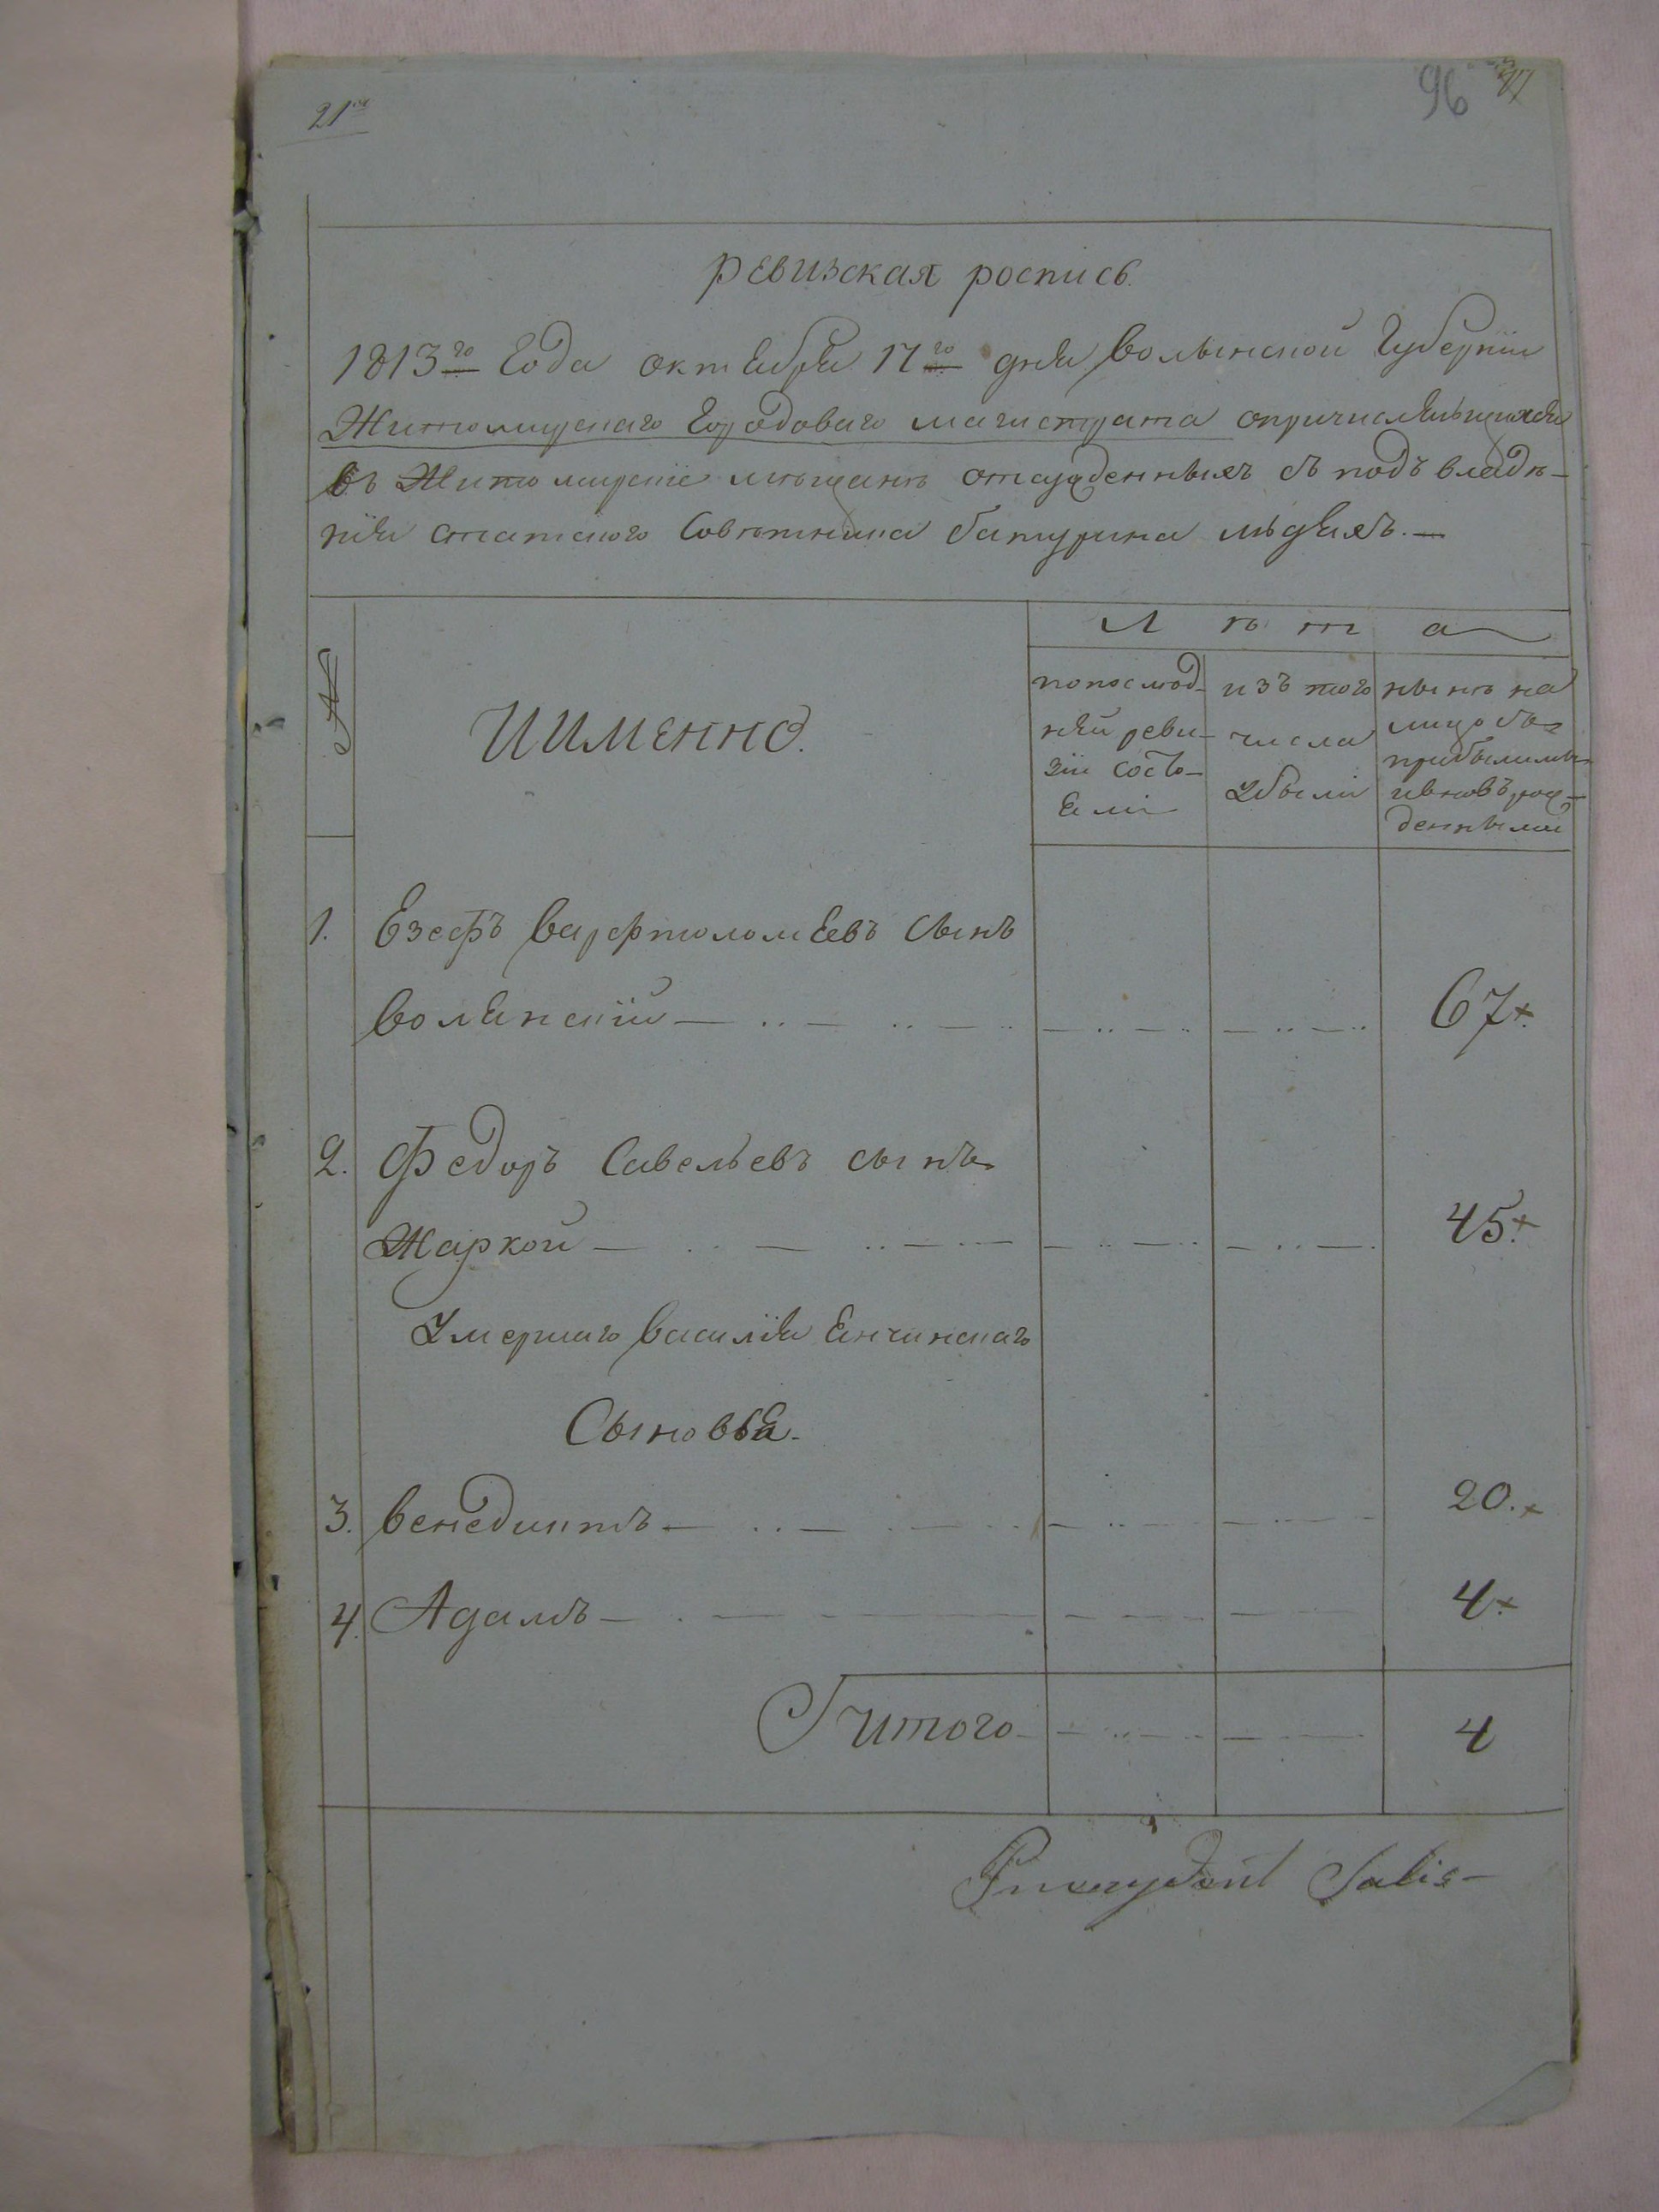 21
96
ревизская роспись.
1813го Года октября 17го дня волынской Губернiи
Житомирскаго Городоваго магистрата опричислявщихся
въ Житомирскiе мѣщане отсужденныхъ съ подъ владѣ-
нiя статского Совѣтника батурина людяхъ.—
Л ѣ т а
№
ИИМЕННО.
попослѣд-
няй реви-
зiи состо-
яли
изъ того
числа
убыли
нынѣ на
лицо съ
прибылыми
ивновьрож-
денными
1. Езефъ варфтоломѣевъ сынъ
волянскiй — 67.
2. Федоръ Савельевъ сынъ
Жаркой — 45.
Умершаго василiя Янчинскаго
Сыновья.
3. венедиктъ — 20.
4. Адамъ — 4.
итого 4
Prezydent Salis